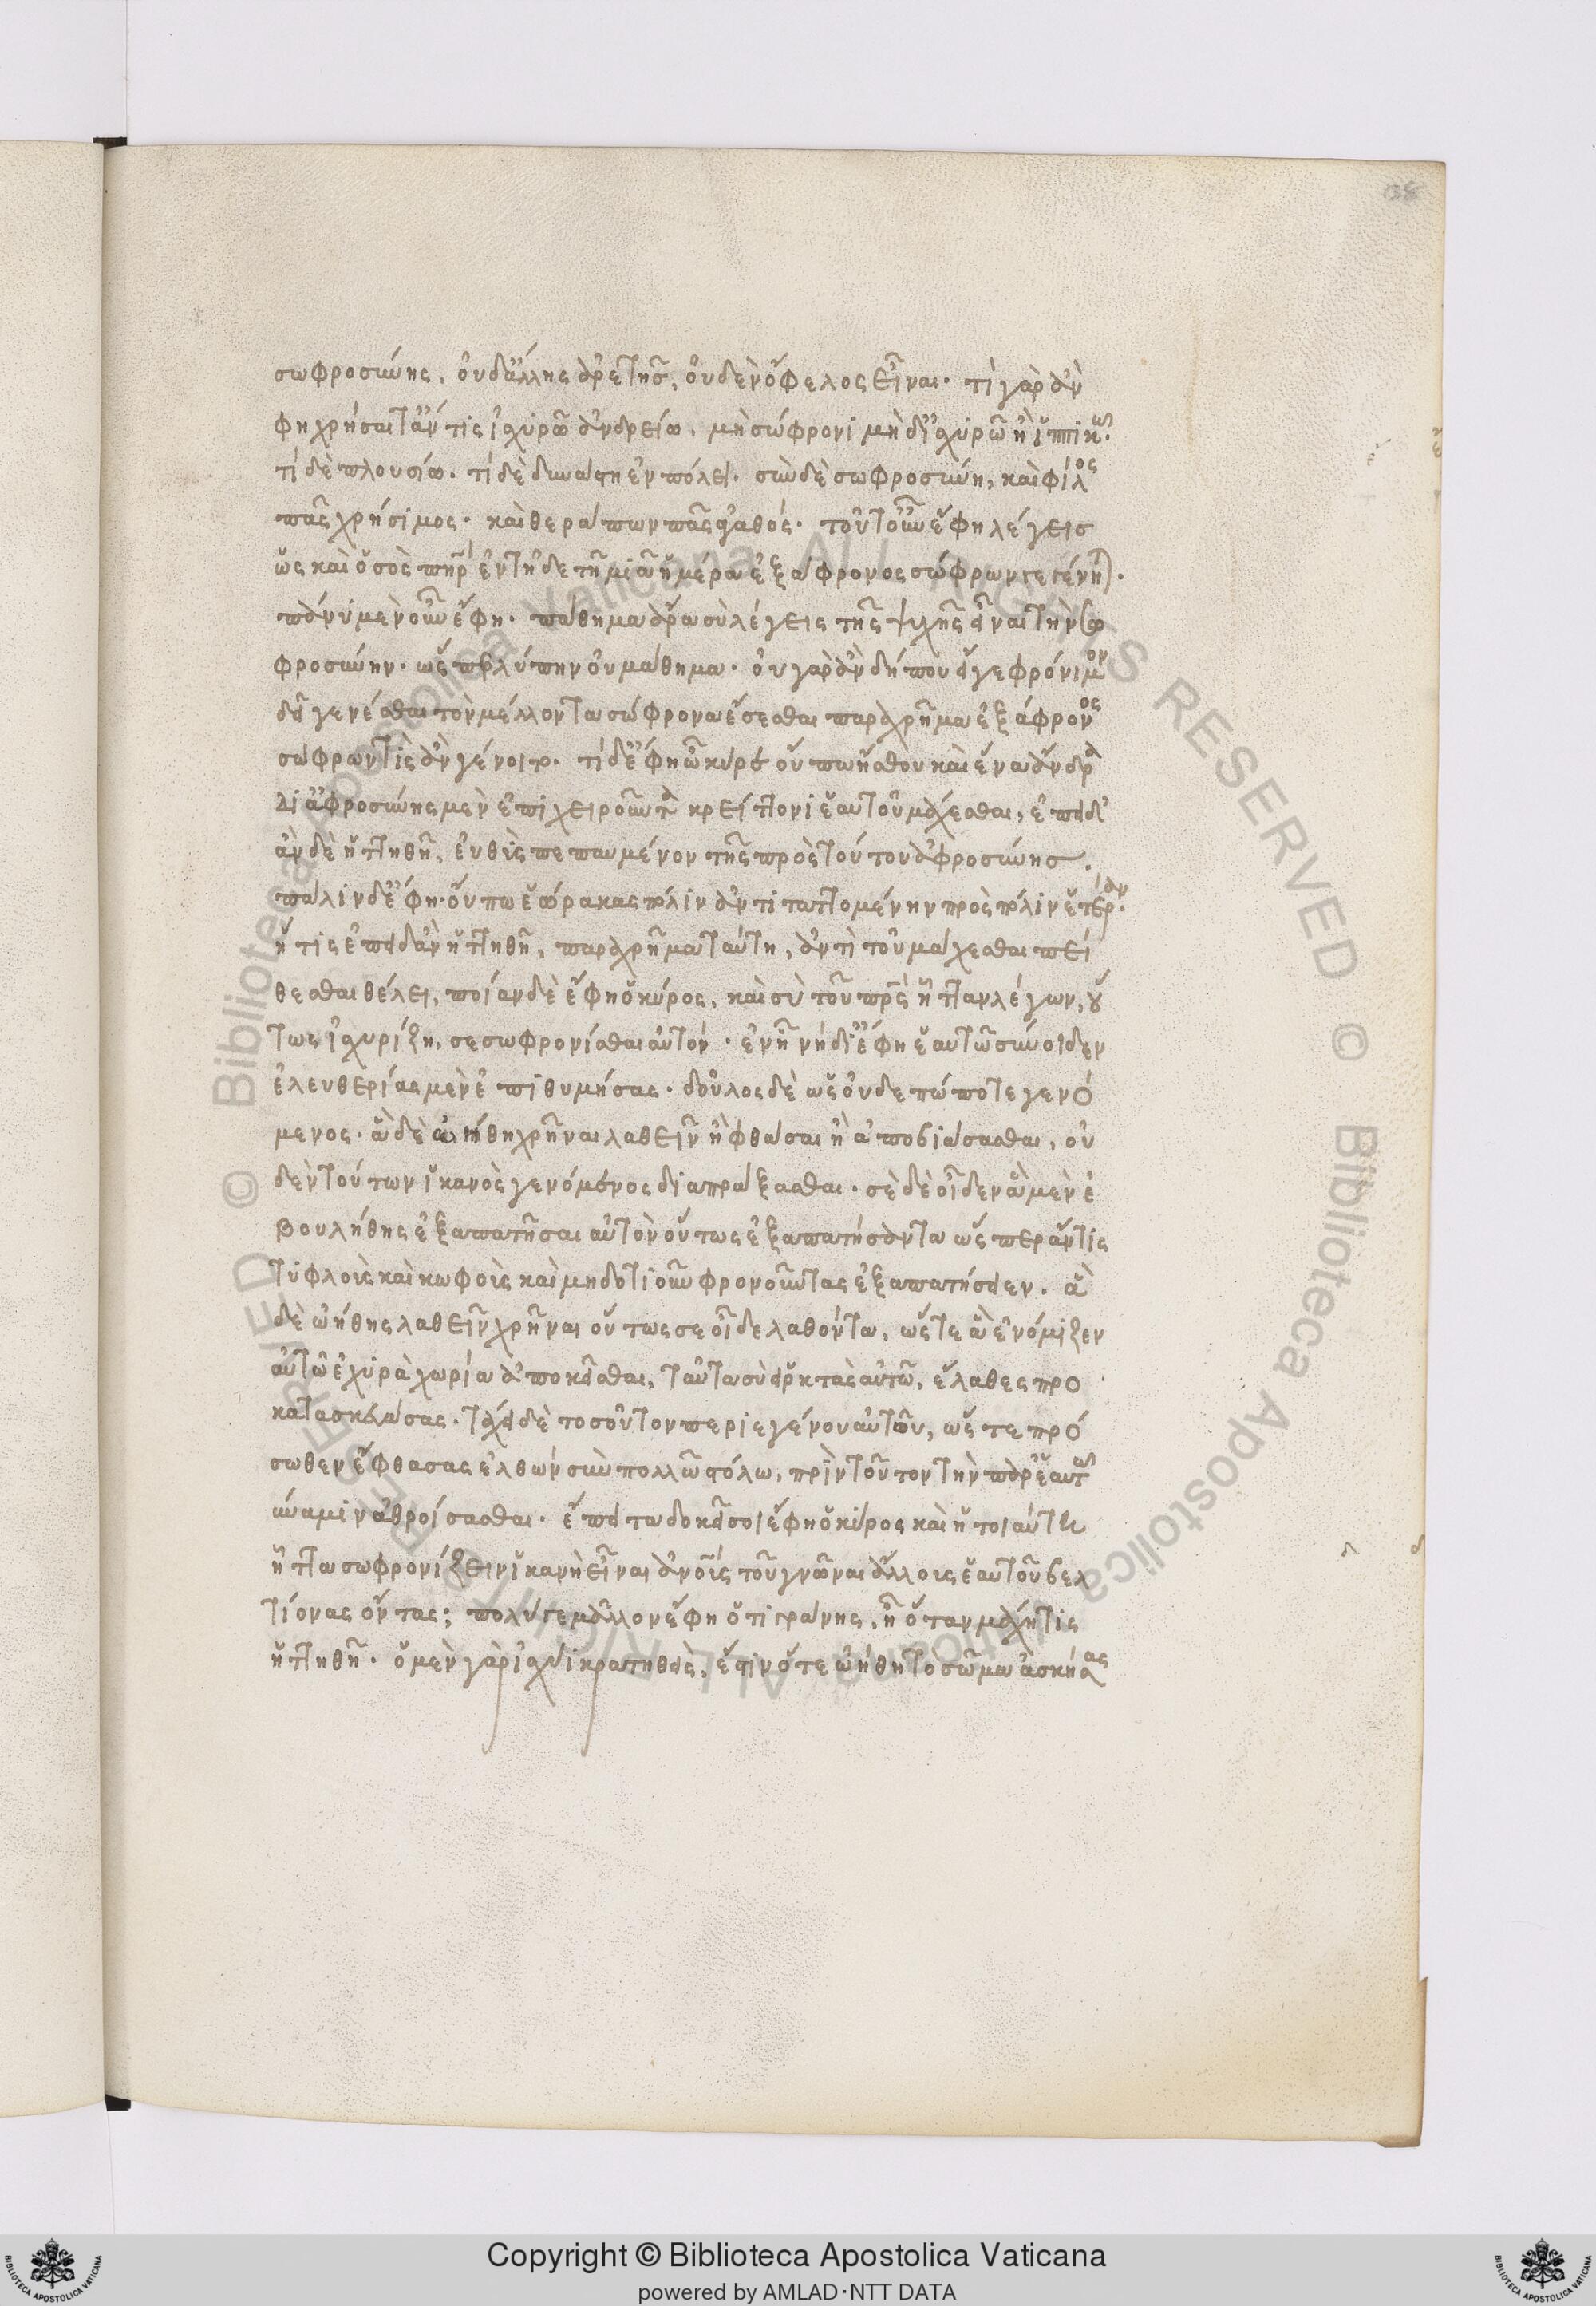 138
σωφροσύνης, οὐδ' ἄλλης ἀρετῆς, οὐδὲν ὄφελος εἶναι· τί γὰρ ἂν
φη χρήσαιτ' ἄν τις ἰσχυρῶ ἀνδρείω, μὴ σώφρονι μὴ δ' ἰσχυρῶ ἢ ἱππικῶ·
τί δὲ πλουσίω· τί δὲ δυνάστη ἐν πόλει· σὺν δὲ σωφροσύνη, καὶ φίλος
πᾶς χρήσιμος· καὶ θεράπων πᾶς ἀγαθός· τοῦτ' οὖν ἔφη λέγεις
ὡς καὶ ὁ σὸς πηρ ἐν τῆδε τῆ μιᾶ ἡμέρα ἐξ ἄφρονος σώφρων γεγένη)·
πάνυ μὲν οὖν ἔφη· πάθημα ἄρα σὺ λέγεις τῆς ψυχῆς εἶναι τὴν σω
φροσύνην· ὥσπερ λύπην οὐ μάθημα· οὐ γὰρ ἂν δήπου εἴγε φρόνιμον
δεῖ γενέσθαι τὸν μέλλοντα σώφρονα ἔσεσθαι παραχρῆμα ἐξ άφρονος
σώφρων τὶς ἂν γένοιτο· τί δ' ἔφη ὦ κῦρε οὔπω ἤσθου καὶ ἕνα ἄνδρα
δι' ἀφροσύνης μὲν ἐπιχειροῦντα κρείττονι ἑαυτοῦ μάχεσθαι, ἐπειδ'
ὰν δὲ ἡττηθῆ, εὐθὺς πεπαυμένον τῆς πρὸς τούτου ἀφροσύνης·
πάλιν δ' ἔφη· οὔπω ἑώρακας πόλιν ἀντιταττομένην πρὸς πόλιν ἑτέραν·
ἥτις ἐπειδὰν ἡττηθῆ, παραχρῆμα ταύτη, ἀντὶ τοῦ μάχεσθαι πεί
θεσθαι θέλει, ποίαν δὲ ἔφη ὁ κύρος, καὶ σὺ τοῦ πρς ἧτταν λέγων, οὕ
τως ἰσχυρίζη, σεσωφρονίσθαι αὐτόν· ἐν ἧ νὴ δί' ἔφη ἑαυτῶ σύνοιδεν
ἐλευθερίας μὲν ἐπιθυμήσας· δοῦλος δὲ ὡς οὐδεπώποτε γενό
μενος· ἃ δὲ ὠήθη χρῆναι λαθεῖν ἢ φθάσαι ἢ ἀποβιάσασθαι, οὐ
δὲν τούτων ἱκανὸς γενόμενος διαπράξασθαι· σὲ δὲ οἶδεν ἃ μὲν ἐ
βουλήθης ἐξαπατῆσαι αὐτὸν οὕτως ἐξαπατήσαντα ὥσπερ ἄν τις
τυφλοὺς καὶ κωφοὺς καὶ μηδοτιοῦν φρονοῦντας ἐξαπατήσειεν· ἃ
δὲ ὠήθης λαθεῖν χρῆναι οὕτως σε οἶδε λαθόντα, ὥστε ἃ ἐνόμιζεν
αὐτῶ ἐχυρὰ χωρία ἀποκεῖσθαι, ταῦτα σὺ εἱρκτὰς αὐτῶ, ἔλαθες προ
κατασκευάσας· τάχει δὲ τοσοῦτον περιεγένου αὐτοῦ, ὥστε πρό
σωθεν ἔφθασας ἐλθὼν σὺν πολλῶ στόλω, πρὶν τοῦτον τὴν παρ' ἑαυτῶ
ύναμιν ἀθροίσασθαι· ἔπειτα δοκεῖ σοι ἔφη ὁ κῦρος καὶ ἡ τοιαύτη
ἧττα σωφρονίζειν ἱκανὴ εἶναι ἀνοὺς τοῦ γνῶναι ἄλλους ἑαυτοῦ βελ
τίονας ὄντας; πολύ γε μᾶλλον ἔφη ὁ τιγράνης, ἢ ὅταν μάχη τὶς
ἡττηθῆ· ὁ μὲν γὰρ ἰσχύι κρατηθεὶς, ἔστιν ὅτε ὠήθη τὸ σῶμα ἀσκήσας
Copyright © Biblioteca Apostolica Vaticana
powered by AMLAD·NTT DATA